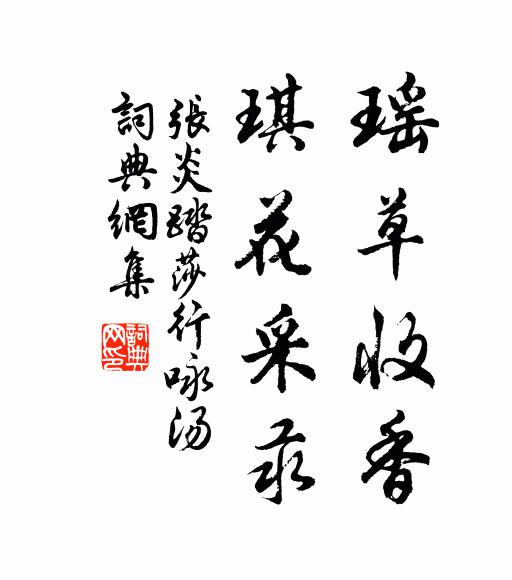 瑶草收香
琪花采汞
張炎踏莎行咏湯
詞典網集
詞典网印